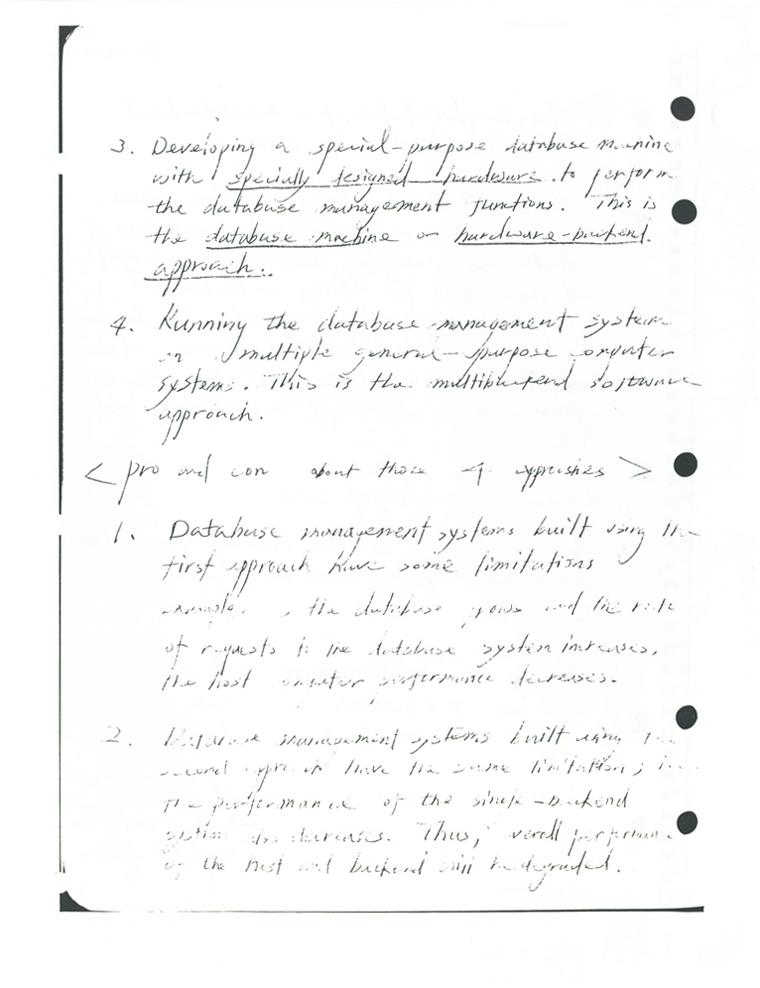 3. Developing a special-purpose database machine
with specially designed hardware to perform
the database management functions. This is
the database machine or hardware-backend
approach.
4. Running the database management system
on multiple general-purpose computer
systems. This is the multibackend software
approach.
< pro and con about those 4 approaches >
1. Database management systems built using the
first approach have some limitations
example, the database grows and the rate
of requests to the database system increases,
the host computer performance decreases.
2. Database management systems built using the
second approach have the same limitation;
the performance of the single-backend
system also decreases. Thus, overall performance
of the host and backend will be degraded.